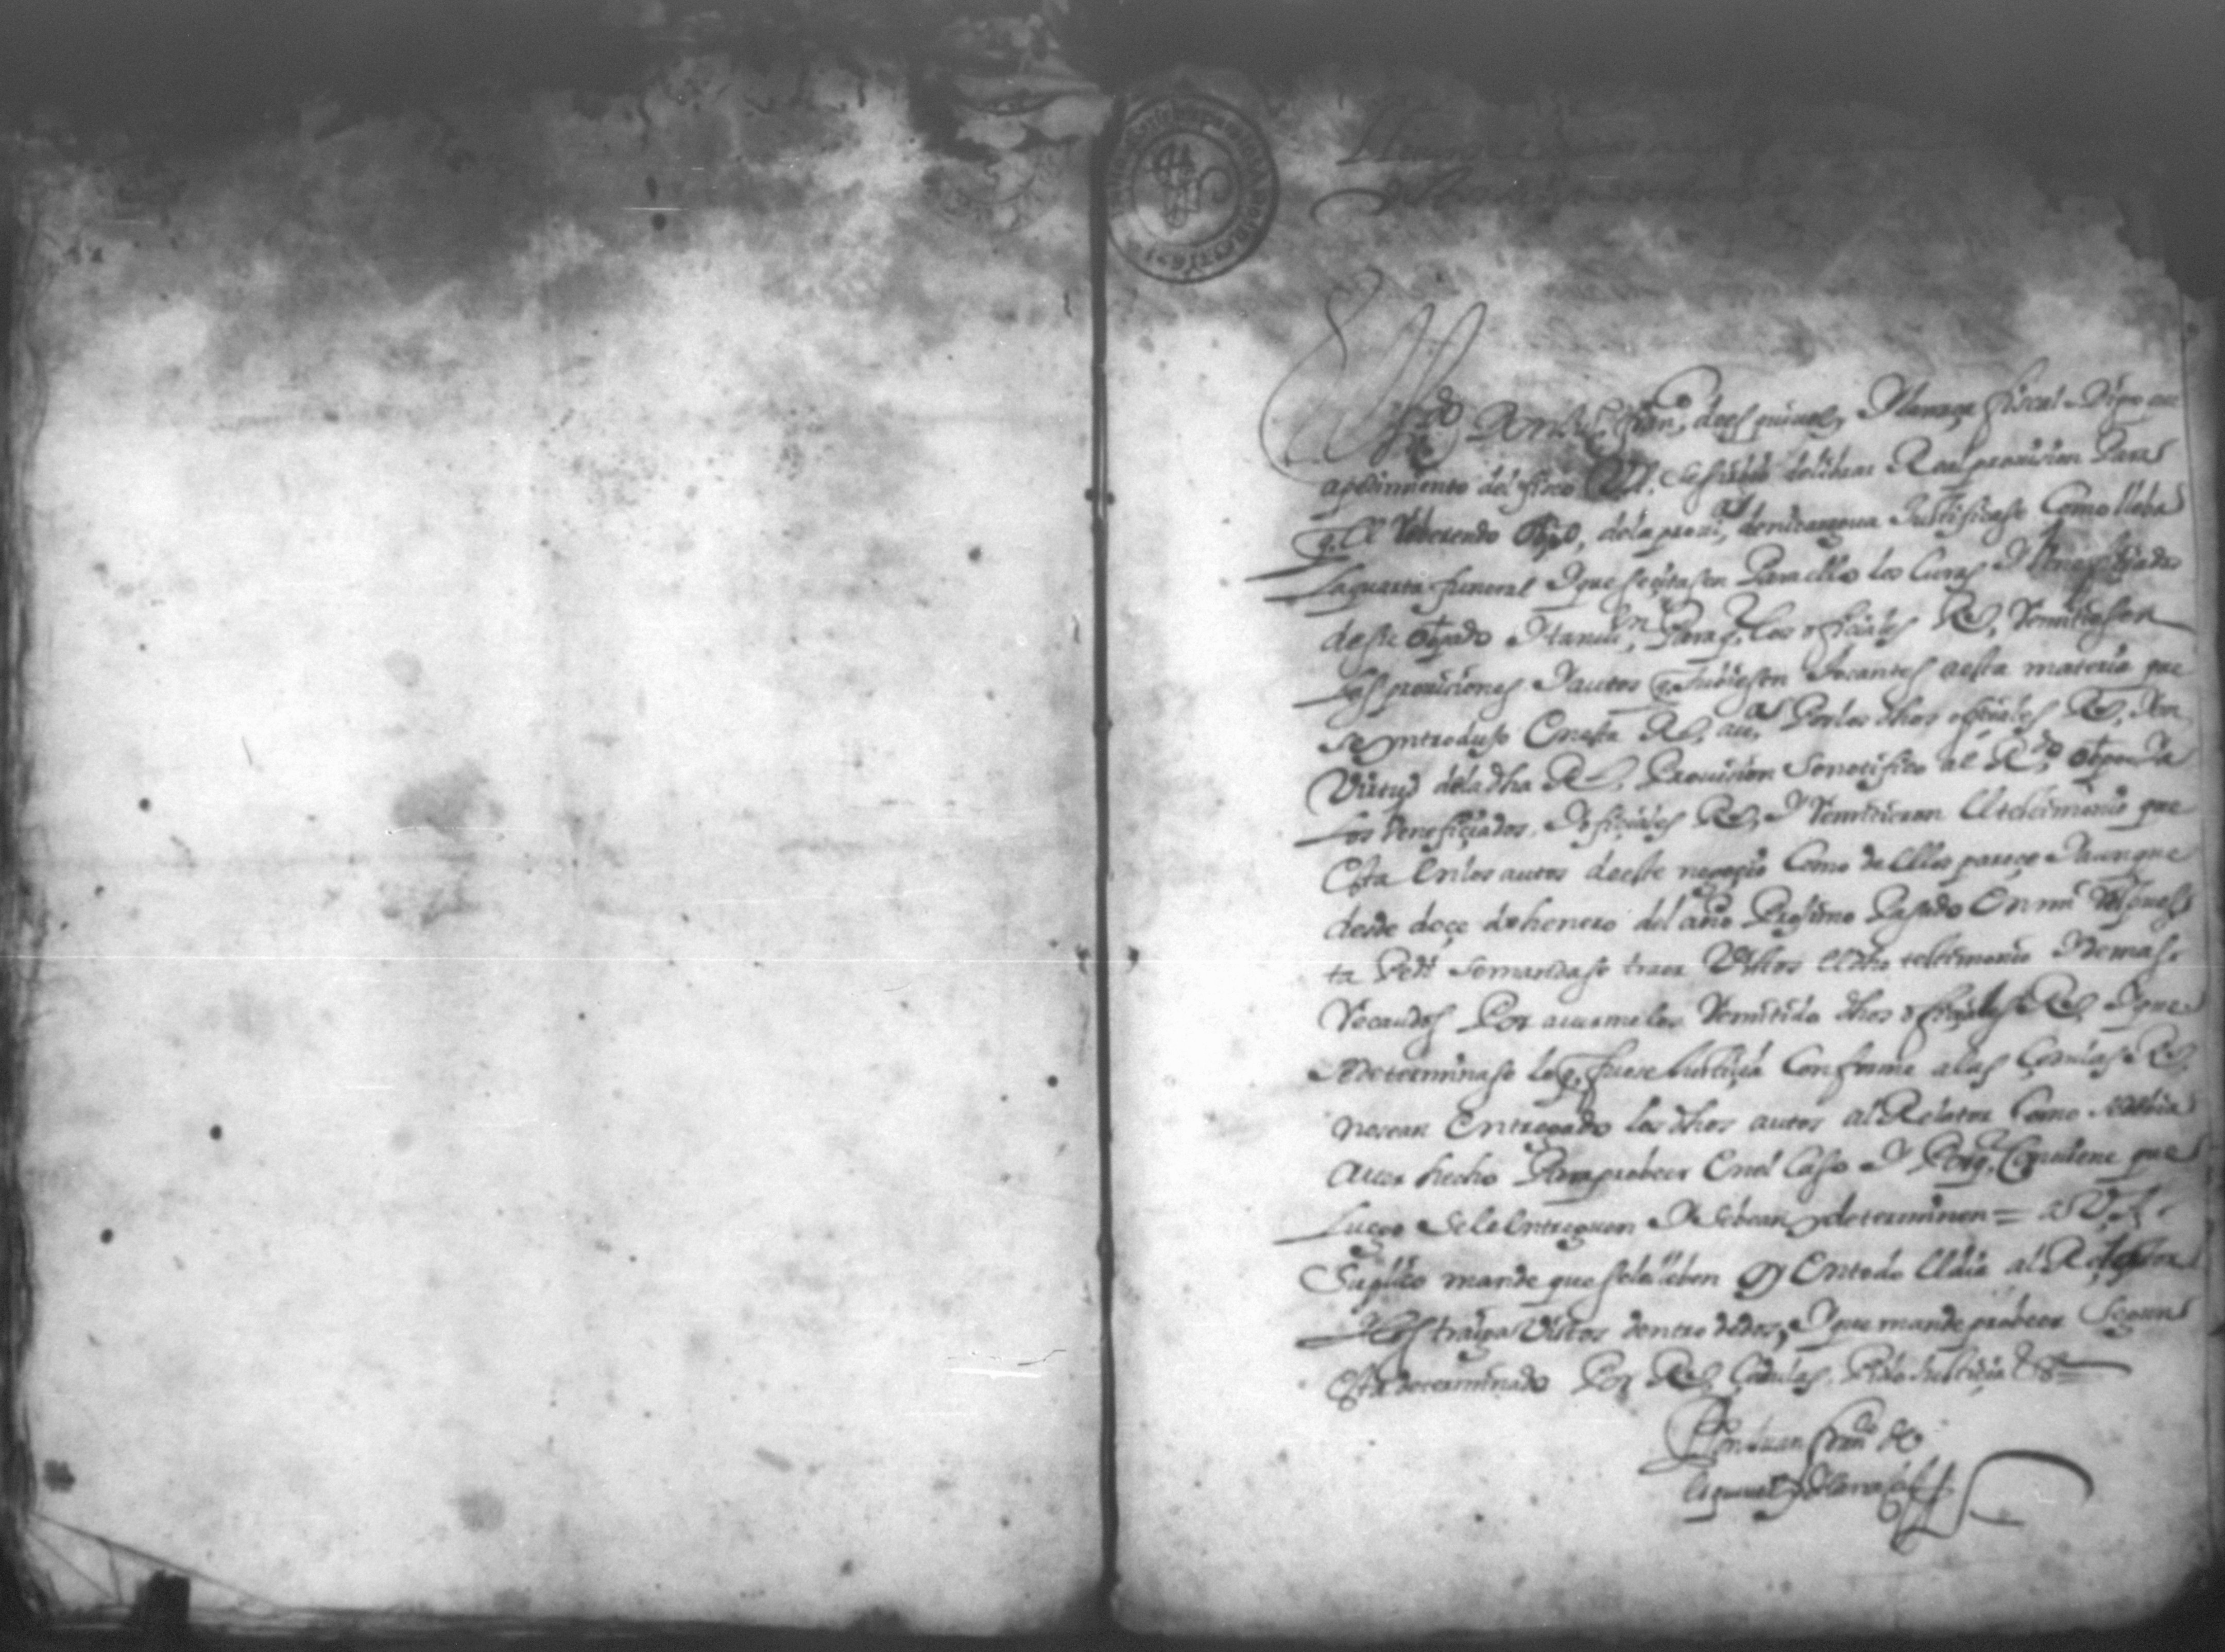 Ldo Don Juan franco de esquiuel y Larraça fiscal Digo que
a pedimiento del fisco Rl. se siruio de librar Real prouision Para
q. el Reberendo Obpo, de la proui, de nicaragua Justificase Como lleba
la quarta funeral y que se çitasen Para ello los Curas y Benefiçiados
de su obpado y tamuin, Para q. los ofiçiales Rs, Remitiesen
las prouiciones y autos q. tubiesen tocantes a esta materia que
se yntroduso En esta Rl, auas Por los dhos ofiçiales Rs, y en
Virtud de la dha Rl, Prouision se notifico al Rdo obpo y a
los benefiçiados, y ofiçiales Rs, y Remitieron el testimonio que
Esta En los autos de este negoçio Como de ellos pareçe y aunque
desde doçe de henero del año Prosimo Pasado En mi Respues
ta Pedi se mandase traer Vistos el dho testimonio y demas
Recaudos Por auerse los Remitido dhos ofiçiales Rs, y que
se determinase lo q. fuese Justiçia Conforme a las Çedulas Rs,
no sean Entregado los dhos autos al Relator Como se debia
auer hecho Para probeer En el Caso y Porq. Conuiene que
Luego se le Entreguen y se bean y determinen = a V. A.
Suplico mande que se le lleben oy En todo el dia al Relator
y los traiga Vistos dentro de dos, y que mande probeer segun
Esta determinado Por Rs, Çedulas, Pido Justiçia &a
Don Juan franco de
esquiuel y Larraça